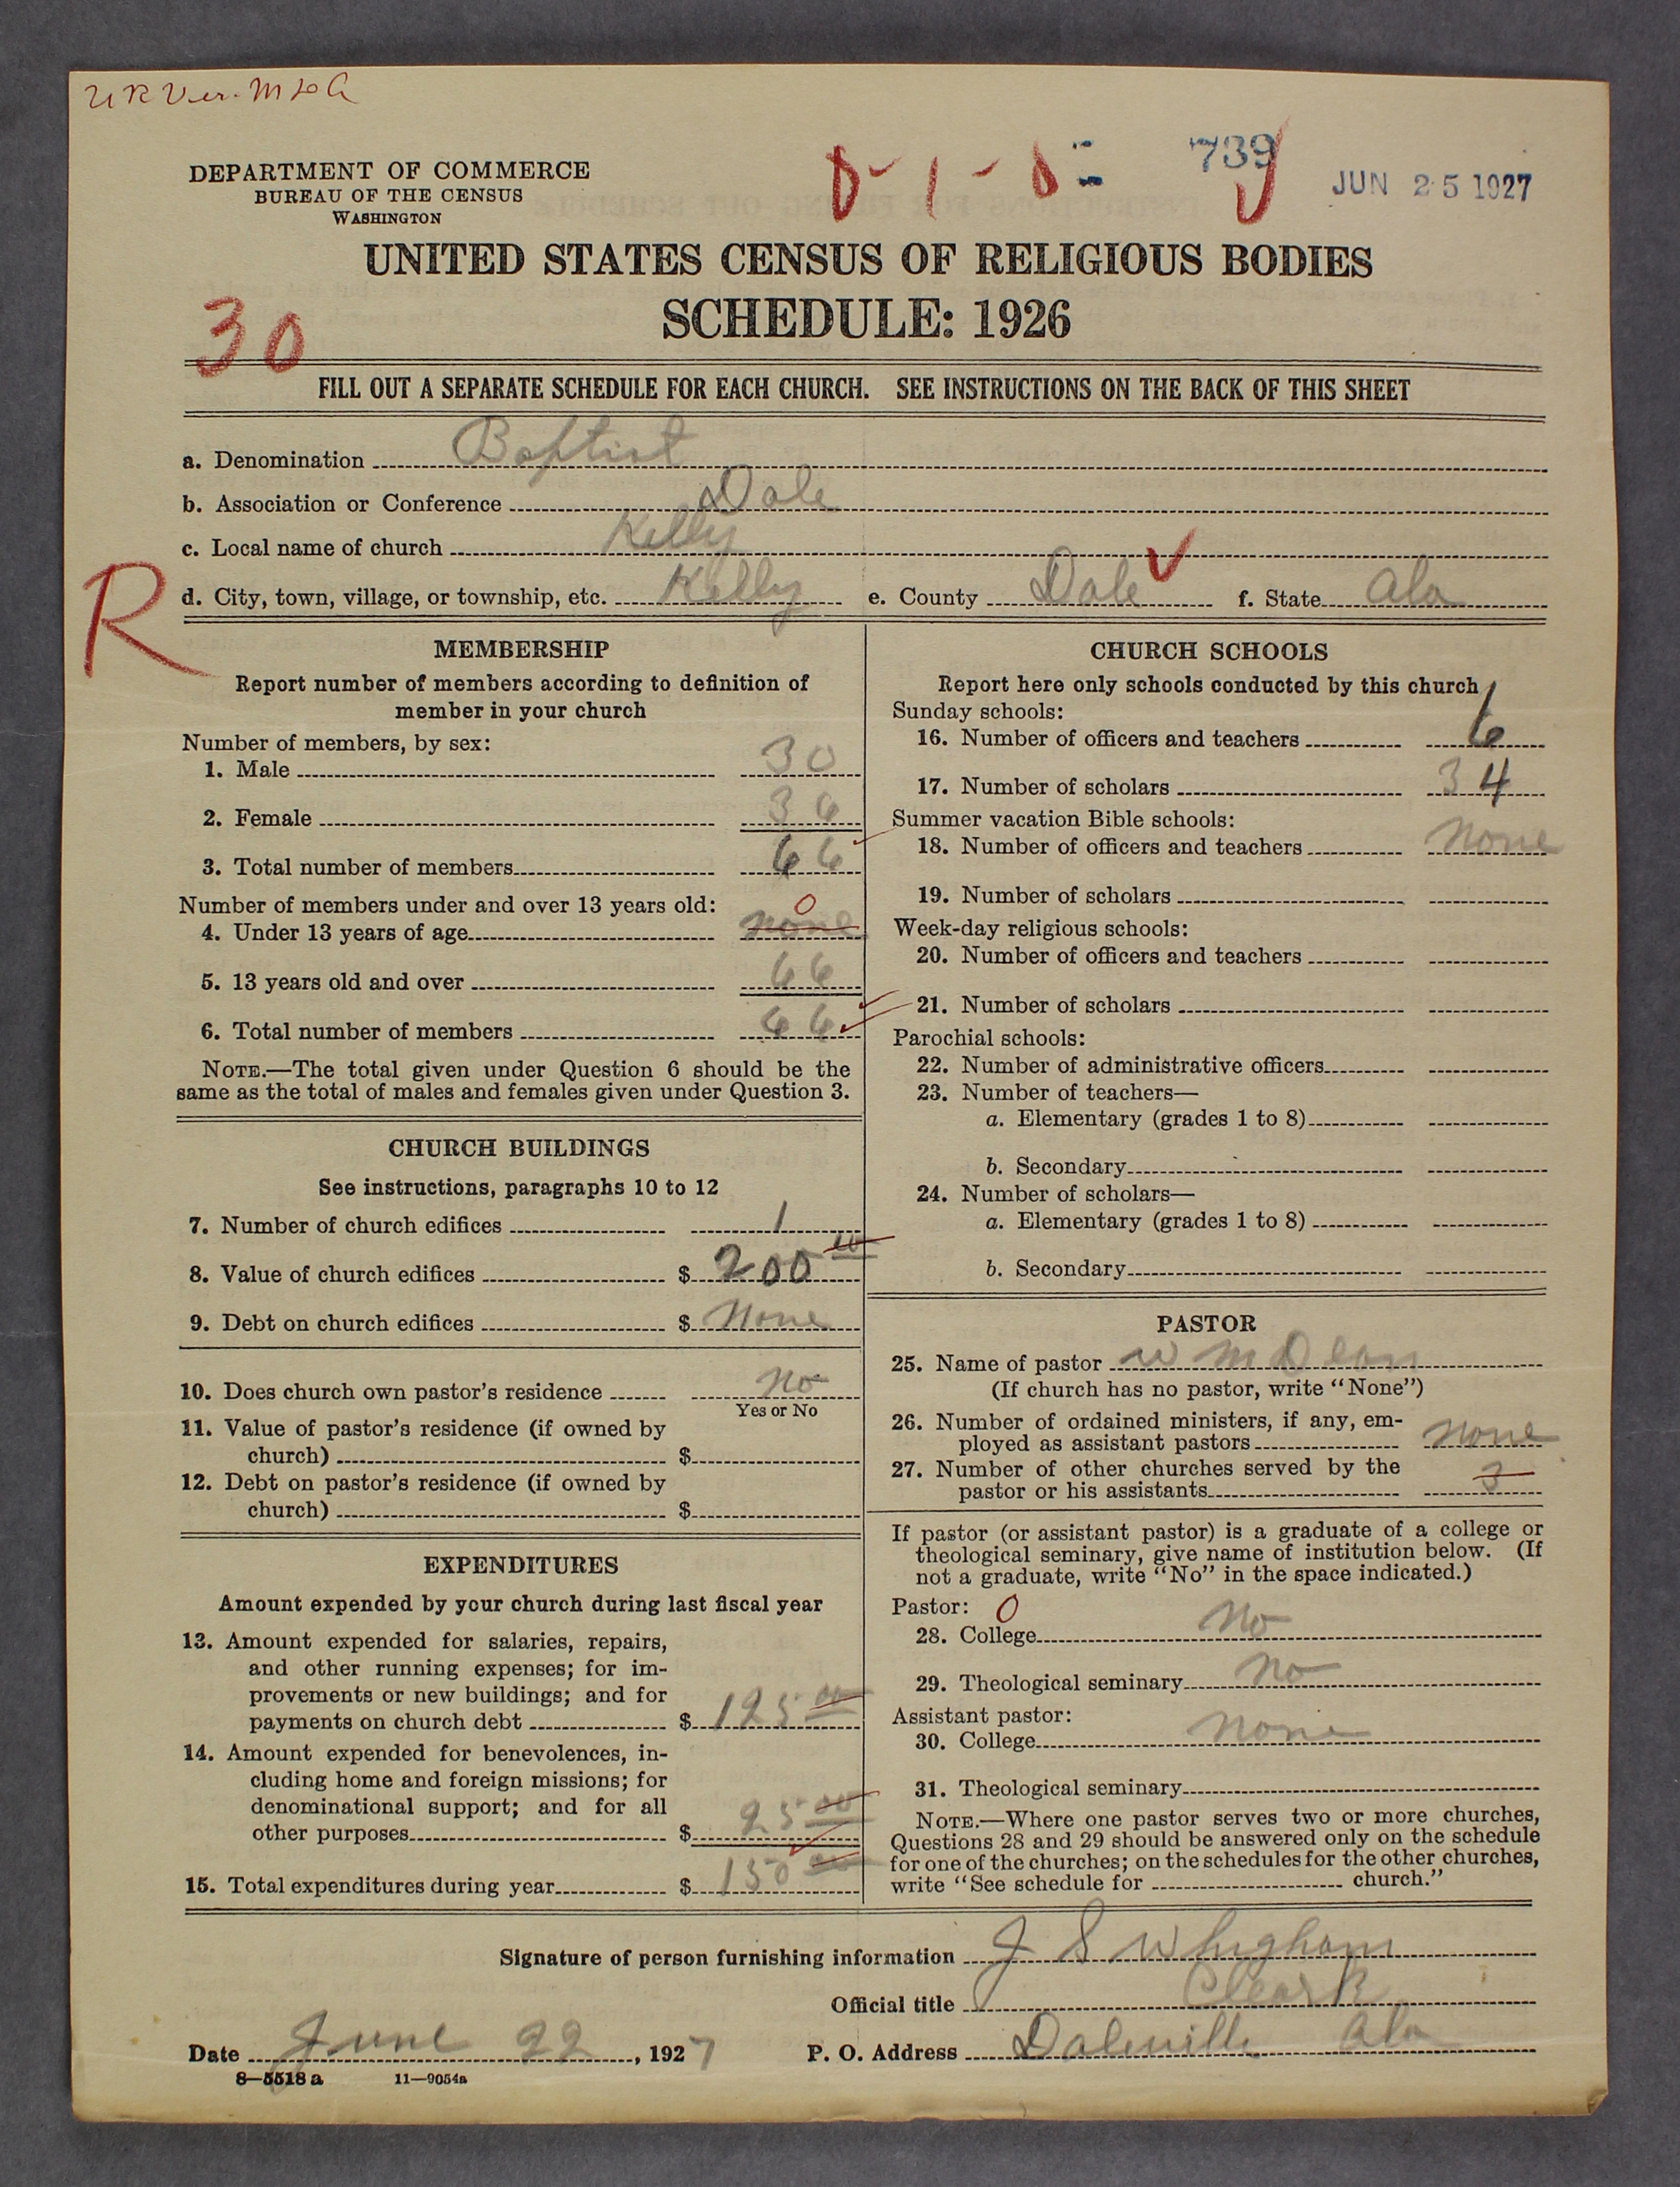 DEPARTMENT OF COMMERCE
BUREAU OF THE CENSUS
WASHINGTON
0-1-0
739
JUN 25 1927
UNITED STATES CENSUS OF RELIGIOUS BODIES
SCHEDULE: 1926
30
FILL OUT A SEPARATE SCHEDULE FOR EACH CHURCH. SEE INSTRUCTIONS ON THE BACK OF THIS SHEET
a. Denomination Baptist
b. Association or Conference Dale
c. Local name of church Kelly
R
d. City, town, village, or township, etc. Kelly e. County Dale f. State Ala
MEMBERSHIP
Report number of members according to definition of
member in your church
Number of members, by sex:
1. Male 30
2. Female 36
3. Total number of members 66
Number of members under and over 13 years old: 0
4. Under 13 years of age none
5. 13 years old and over 66
6. Total number of members 66
NOTE.—The total given under Question 6 should be the
same as the total of males and females given under Question 3.
CHURCH BUILDINGS
See instructions, paragraphs 10 to 12
7. Number of church edifices 1
8. Value of church edifices $ 200 00
9. Debt on church edifices $ None
10. Does church own pastor's residence No
Yes or No
11. Value of pastor's residence (if owned by
church) $
12. Debt on pastor's residence (if owned by
church) $
EXPENDITURES
Amount expended by your church during last fiscal year
13. Amount expended for salaries, repairs,
and other running expenses; for im-
provements or new buildings; and for
payments on church debt $ 125 00
14. Amount expended for benevolences, in-
cluding home and foreign missions; for
denominational support; and for all
other purposes $ 25 00
15. Total expenditures during year $ 150 00
CHURCH SCHOOLS
Report here only schools conducted by this church
Sunday schools:
16. Number of officers and teachers 6
17. Number of scholars 34
Summer vacation Bible schools:
18. Number of officers and teachers None
19. Number of scholars
Week-day religious schools:
20. Number of officers and teachers
21. Number of scholars
Parochial schools:
22. Number of administrative officers
23. Number of teachers—
a. Elementary (grades 1 to 8)
b. Secondary
24. Number of scholars—
a. Elementary (grades 1 to 8)
b. Secondary
PASTOR
25. Name of pastor W M Dean
(If church has no pastor, write "None")
26. Number of ordained ministers, if any, em-
ployed as assistant pastors None
27. Number of other churches served by the
pastor or his assistants 3
If pastor (or assistant pastor) is a graduate of a college or
theological seminary, give name of institution below. (If
not a graduate, write "No" in the space indicated.)
Pastor: 0
28. College No
29. Theological seminary No
Assistant pastor:
30. College None
31. Theological seminary
NOTE.—Where one pastor serves two or more churches,
Questions 28 and 29 should be answered only on the schedule
for one of the churches; on the schedules for the other churches,
write "See schedule for church."
Signature of person furnishing information J S Whigham
Official title Cleark
Date June 22, 1927 P. O. Address Daleville Ala
8—5518 a 11—9054a